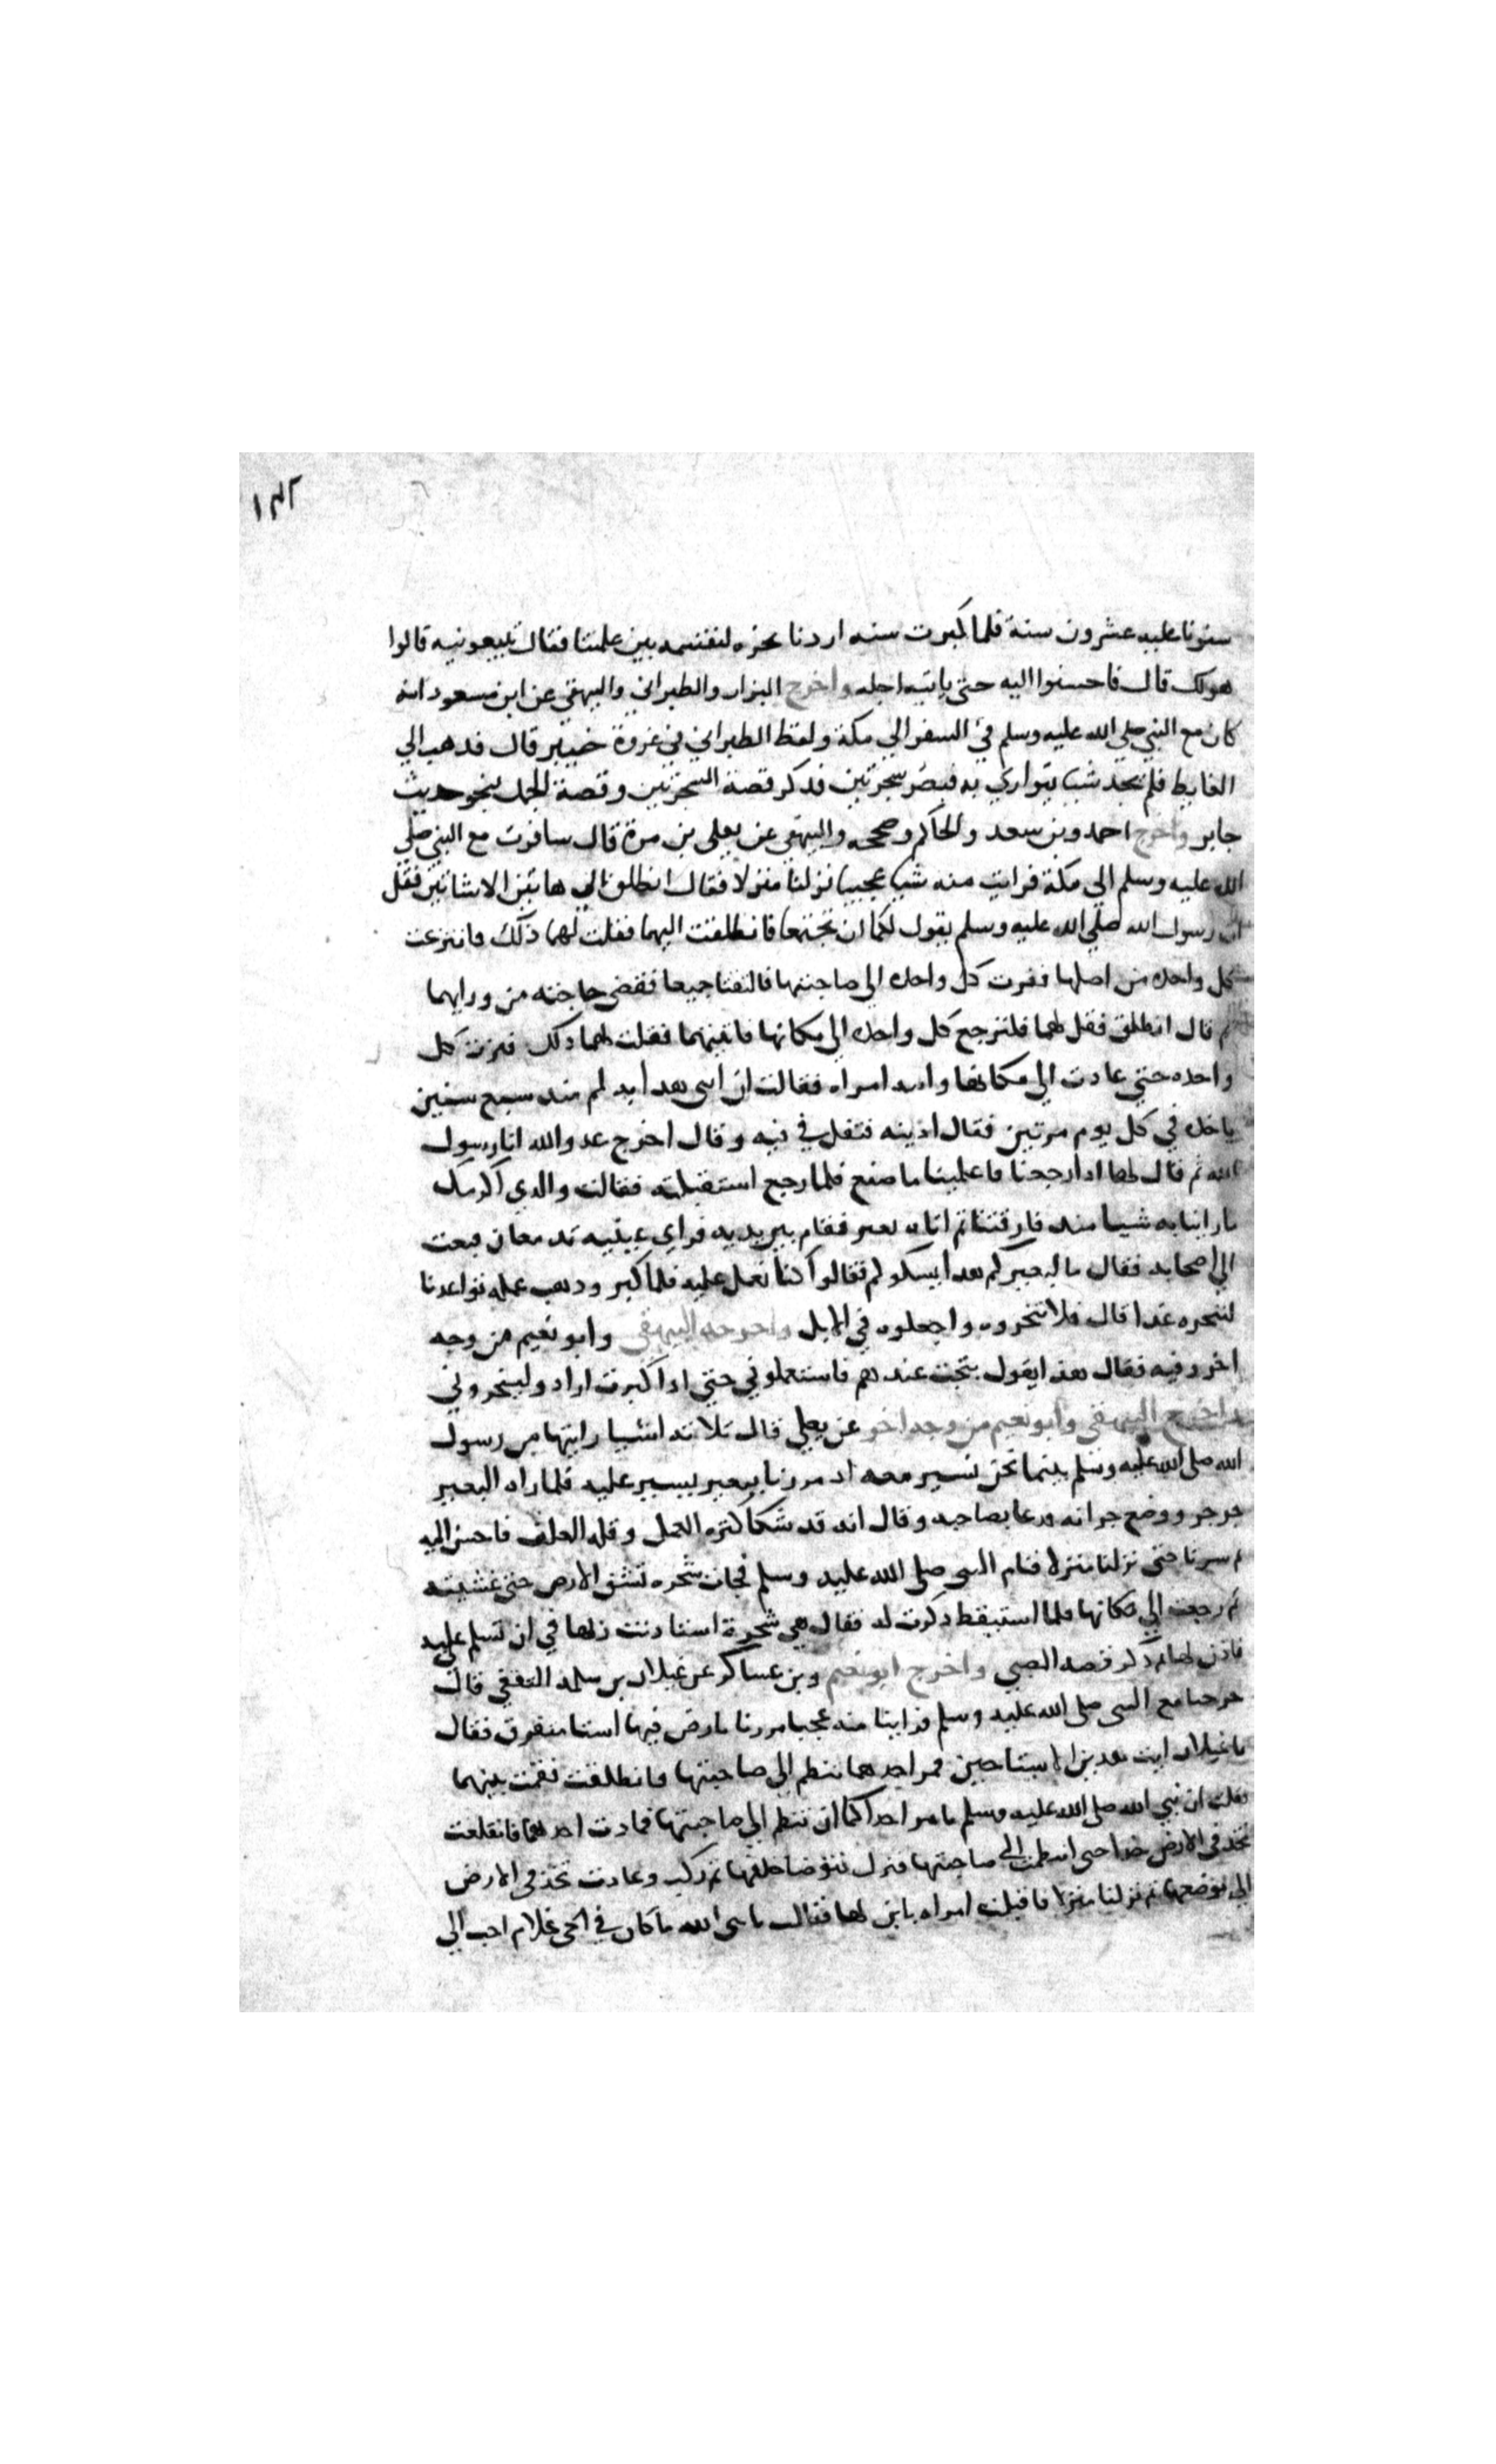 ١٣٢
سنونا عليه عشرون سنة فلما كبرت سنه اردنا نحره لنقتسمه بين غلمتنا فقال تبيعونيه قالوا
هو لك قال فاحسنوا اليه حتى ياتيه اجله واخرج البزار والطبراني والبيهقي عن ابن مسعود انه
كان مع النبي صلي الله عليه وسلم في السفر الي مكة ولفظ الطبراني في غزوة خيبر قال فذهب الي
الغايط فلم يجد شيا يتواري به فبصر بشجرتين فذكر قصة الشجرتين وقصة الجمل بنحو حديث
جابر واخرج احمد وبن سعد والحاكم وصححه والبيهقي عن يعلى بن مرة قال سافرت مع النبي صلي
الله عليه وسلم الى مكة فرايت منه شيا عجيبا نزلنا منزلا فقال انطلق الي هاتين الاشاتين فقل
ان رسول الله صلي الله عليه وسلم يقول لكما ان تجتمعا فانطلقت اليهما فقلت لهما ذلك فانتزعت
كل واحده من اصلها فمرت كل واحده الي صاحبتها فالتفتا جميعا فقضى حاجته من ورايهما
ثم قال انطلق فقل لهما فلترجع كل واحده الي مكانها فاتيتهما فقلت لهما ذلك فنزت كل
واحده حتي عادت الي مكانها واتته امراه فقالت ان ابني هذا به لمم منذ سبع سنين
ياخذه في كل يوم مرتين فقال ادنيه فتفل في فيه وقال اخرج عدو الله انا رسول
الله ثم قال لها اذا رجعنا فاعلمينا ما صنع فلما رجع استقبلته فقالت والذي اكرمك
ما راينا به شيا منذ فارقتنا ثم اتاه بعير فقام بين يديه فراي عينيه تدمعان فبعث
الي اصحابه فقال ما لبعيركم هذا يشكوكم فقالوا كنا نعمل عليه فلما كبر وذهب عمله تواعدنا
لننحره غدا قال فلا تنحروه واجعلوه في الابل واخرجه البيهقي وابو نعيم من وجه
اخر وفيه فقال هذا يقول نتجت عندهم فاستعملوني حتي اذا كبرت ارادو لينحروني
واخرج البيهقي وابو نعيم من وجه اخر عن يعلي قال ثلاثه اشيا رايتها من رسول
الله صلى الله عليه وسلم بينما نحن نسير معه اذ مررنا ببعير يسير عليه فلما راه البعير
جرجر ووضع جرانه ودعا بصاحبه وقال انه قد شكا كثره العمل وقله العلف فاحسن اليه
ثم سرنا حتى نزلنا منزلا فنام النبي صلى الله عليه وسلم فجات شجره تشق الارض حتى غشيته
ثم رجعت الي مكانها فلما استيقظ ذكرت له فقال هي شجرة استاذنت ربها في ان تسلم علي
فاذن لها ثم ذكر قصه الصبي واخرج ابو نعيم وبن عساكر عن غيلان بن سلمه الثقفي قال
خرجنا مع النبي صلى الله عليه وسلم فراينا منه عجبا مررنا بارض فيها اشا متفرق فقال
يا غيلان ايت هذين الاشاتين فمر احدهما تنظم الى صاحبتها فانطلقت فقمت بينهما
فقلت ان نبي الله صلى الله عليه وسلم يامر احداكما ان تنظم الى صاحبتها فمادت احدهما فانقلعت
تخد في الارض خدا حتى انتظمت الى صاحبتها فنزل فتوضا خلفهما ثم ركب وعادت تخد في الارض
الى موضعها ثم نزلنا منزلا فاقبلت امراه بابن لها فقالت يا نبي الله ما كان في الحي غلام احب الي